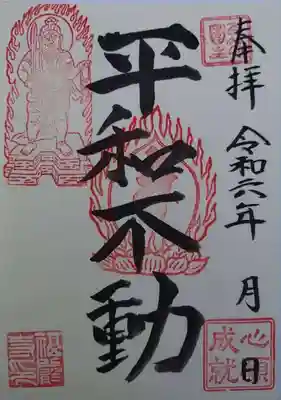 奉拝
令和六年 月 日
平和不動
心願
成就